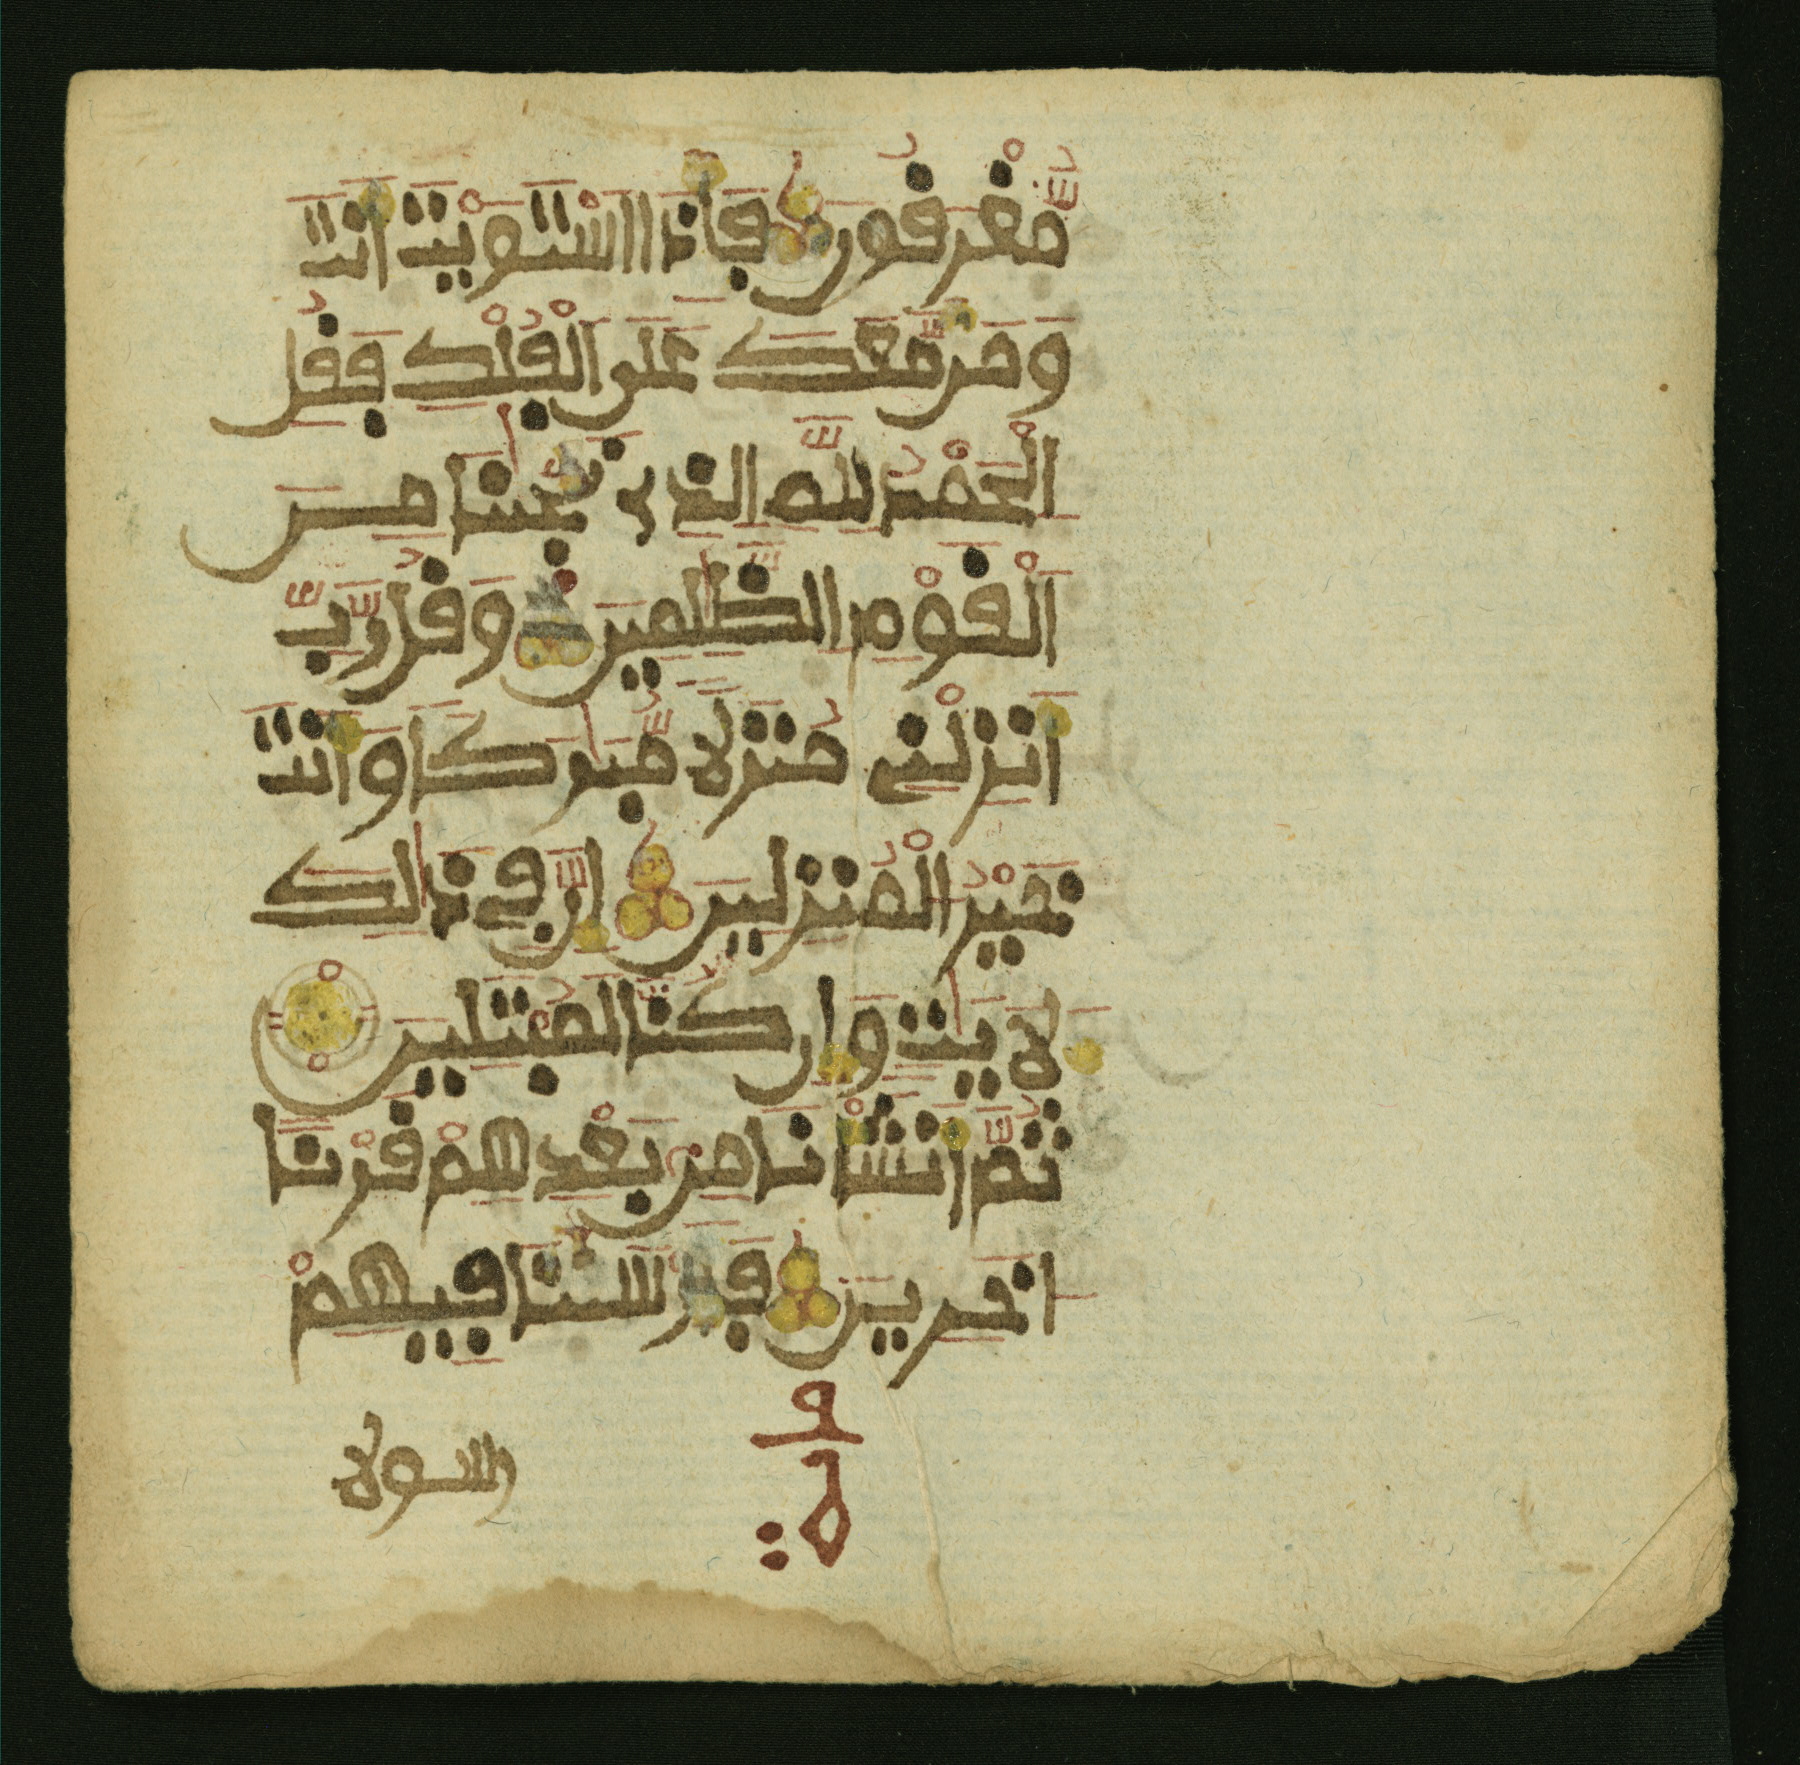 مغرقون فاذا استويت انت
ومن معك على الفلك فقل
الحمد لله الذي نجينا من
القوم الظلمين وقل رب
انزلني منزلا مبركا وانت
خير المنزلين ان في ذلك
لايت وان كنا لمبتلين
ثم انشانا من بعدهم قرنا
اخرين فارسلنا فيهم
رسولا